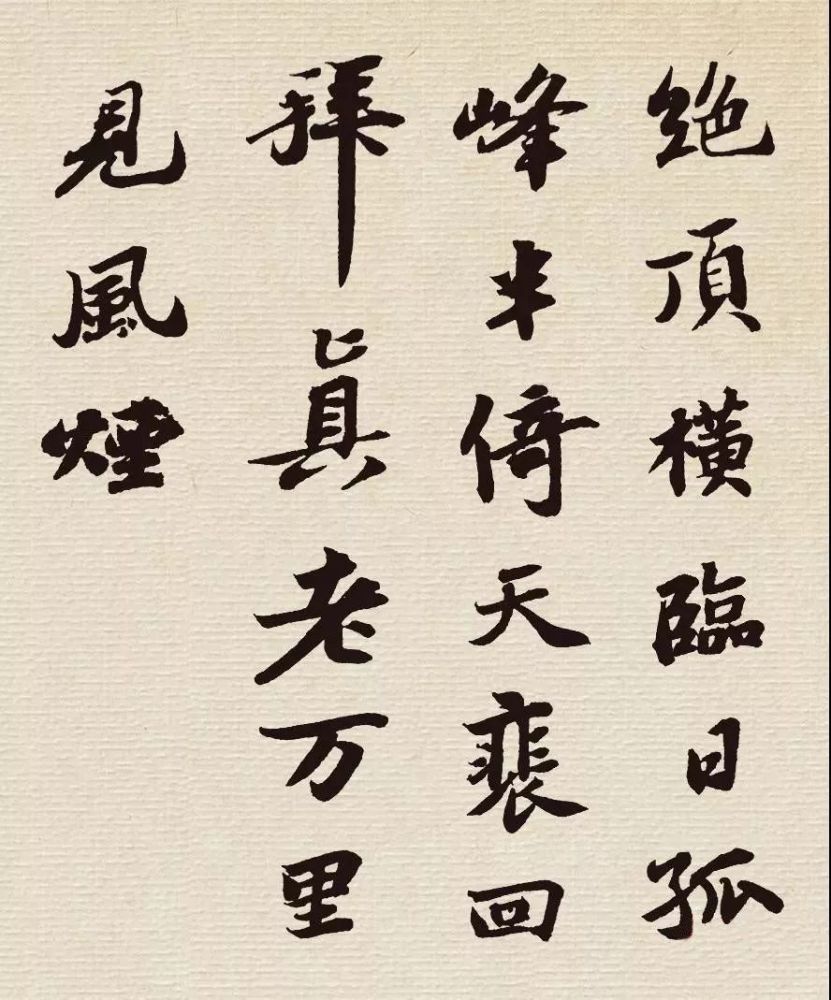 絶頂橫臨日孤
峰半倚天裵回
拜真老万里
見風煙